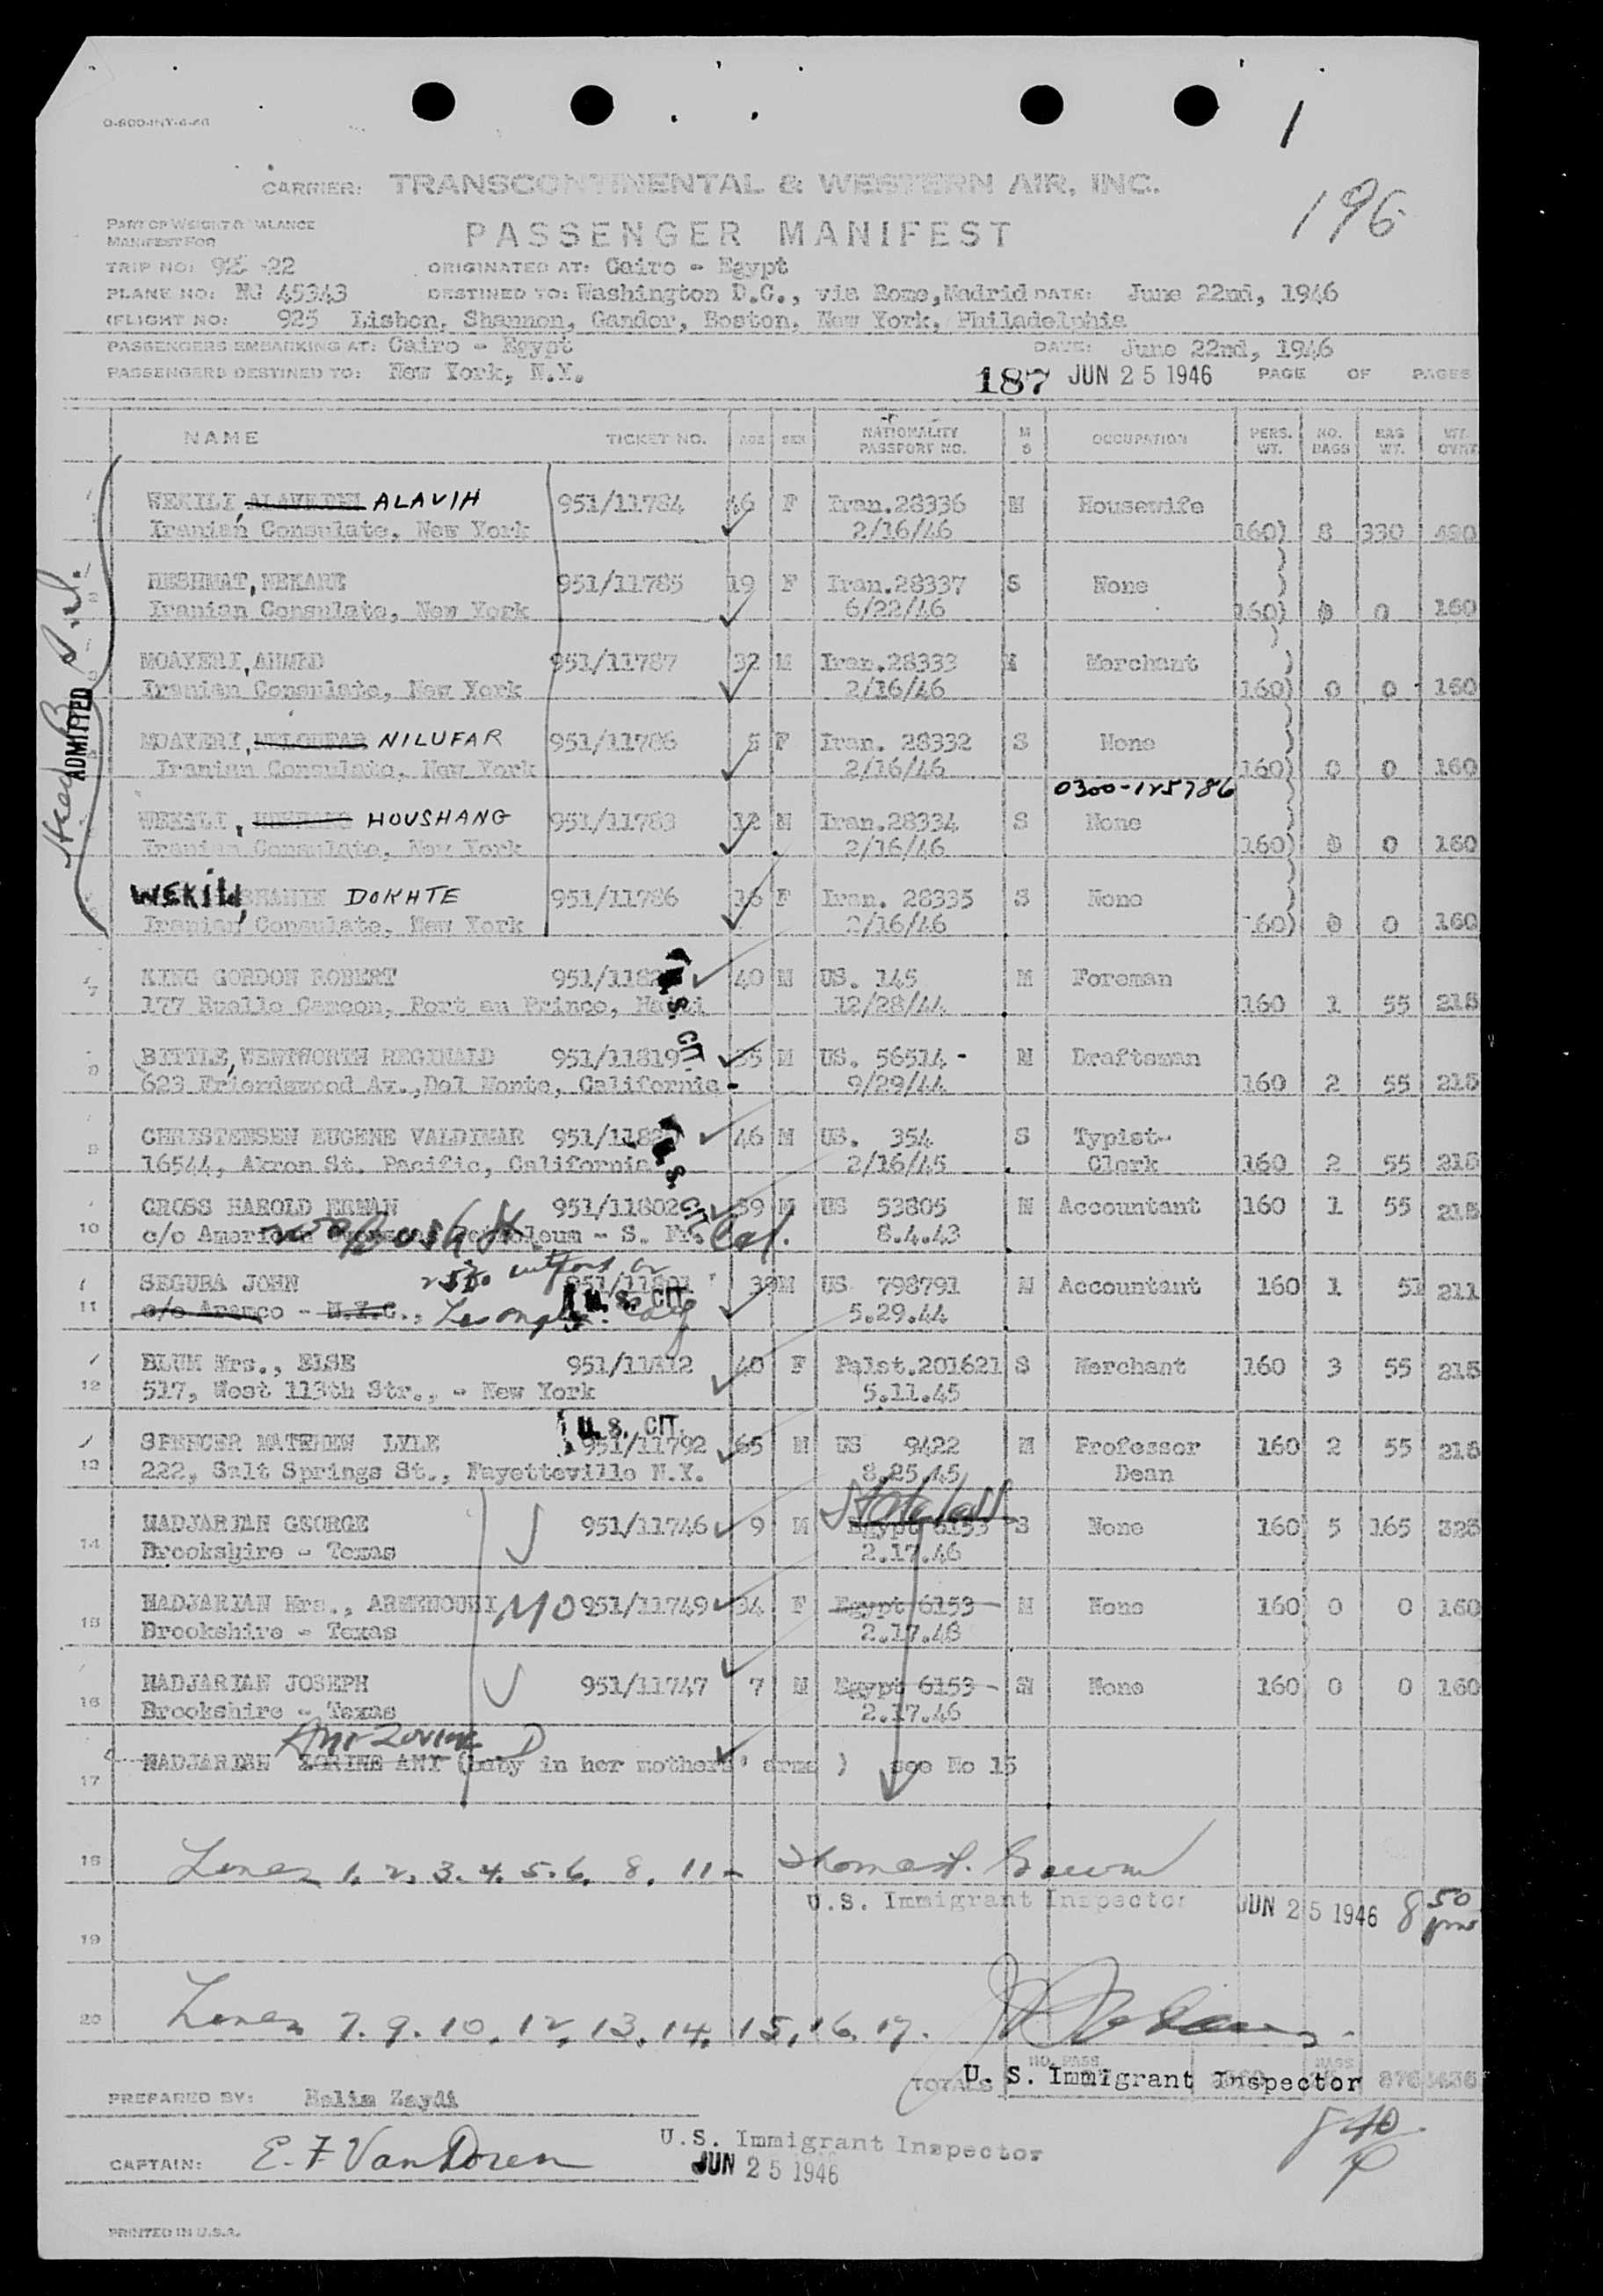 1
O-600-INY-4-46
196
CARRIER: TRANSCONTINENTAL & WESTERN AIR, INC.
PART OF WEIGHT & BALANCE
MANIFEST FOR
PASSENGER MANIFEST
TRIP NO: 925-22 ORIGINATED AT: Cairo - Egypt
PLANE NO: NC 45343 DESTINED TO: Washington D.C., via Rome, Madrid DATE: June 22nd, 1946
(FLIGHT NO: 925 Lisbon, Shannon, Gander, Boston, New York, Philadelphia
PASSENGERS EMBARKING AT: Cairo - Egypt DATE: June 22nd, 1946
PASSENGERS DESTINED TO: New York, N.Y. 187 JUN 25 1946 PAGE OF PAGES
NAME TICKET NO. AGE SEX NATIONALITY PASSPORT NO. M S OCCUPATION PERS. WT. NO. BAGS BAG WT.
ADMITTED
WEKILI, ALAVIH 951/11784 46 F Iran.28336 M Housewife
Iranian Consulate, New York 2/16/46 160) 8 330 490
HESHMAT, MEKARE 951/11785 19 F Iran.28337 S None
Iranian Consulate, New York 6/22/46 160) 0 0 160
MOAYERI, AHMED 951/11787 32 M Iran.28333 M Merchant
Iranian Consulate, New York 2/16/46 160) 0 0 160
MOAYERI, NILUFAR 951/11786 5 F Iran. 28332 S None
Iranian Consulate, New York 2/16/46 160) 0 0 160
0300-125786
WEKILI, HOUSHANG 951/11783 12 M Iran.28334 S None
Iranian Consulate, New York 2/16/46 160) 0 0 160
WEKILI, DOKHTE 951/11786 16 F Iran. 28335 S None
Iranian Consulate, New York 2/16/46 160) 0 0 160
7 KING GORDON ROBERT 951/1182 40 M US. 145 M Foreman
177 Ruelle Cameon, Port au Prince, Haiti 12/28/44 160 1 55 215
BITTLE, WENTWORTH REGINALD 951/11819 35 M US. 56514 - M Draftsman
623 Friendswood Av., Del Monte, California 9/29/44 160 2 55 215
9 CHRISTENSEN EUGENE VALDIMAR 951/1182 46 M US. 354 S Typist-
16544, Akron St. Pacific, California 2/16/45 Clerk 160 2 55 215
GROSS HAROLD ERMAN 951/11802 39 M US 53805 M Accountant 160 1 55 215
10 c/o American Petroleum - S. Fr. Cal. 8.4.43
200 Bush St.
SEGURA JOHN 951/11801 38 M US 798791 M Accountant 160 1 51 211
11 c/o Aramco - N.Y.C., U.S. CIT 5.29.44
BLUM Mrs., ELSE 951/11A12 40 F Palst.201621 S Merchant 160 3 55 215
12 517, West 113th Str., - New York 5.11.45
U.S. CIT.
SPENCER MATTHEW LYLE 951/11792 65 M US 9422 M Professor 160 2 55 215
13 222, Salt Springs St., Fayetteville N.Y. 8.25.45 Dean
Stateless
MADJARIAN GEORGE 951/11746 9 M Egypt 6153 S None 160 5 165 325
14 Brookshire - Texas 2.17.46
MADJARIAN Mrs., ARMENOUHI 951/11749 34 F Egypt 6153 M None 160 0 0 160
15 Brookshire - Texas 2.17.46
MADJARIAN JOSEPH 951/11747 7 M Egypt 6153 None 160 0 0 160
16 Brookshire - Texas 2.17.46
Ani Zovine
17 MADJARIAN ZORINE ANI (baby in her mothers' arms ) see No 15
18 Lines 1. 2. 3. 4. 5. 6. 8. 11 -
U.S. Immigrant Inspector JUN 25 1946 8 50 pm
19
20 Lines 7. 9. 10. 12, 13. 14. 15. 16. 17.
NO. PASS
TOTALS U. S. Immigrant Inspector
PREPARED BY: Halim Zaydi
8 40
U.S. Immigrant Inspector
CAPTAIN: E. F. Van Doren
JUN 25 1946
PRINTED IN U.S.A.